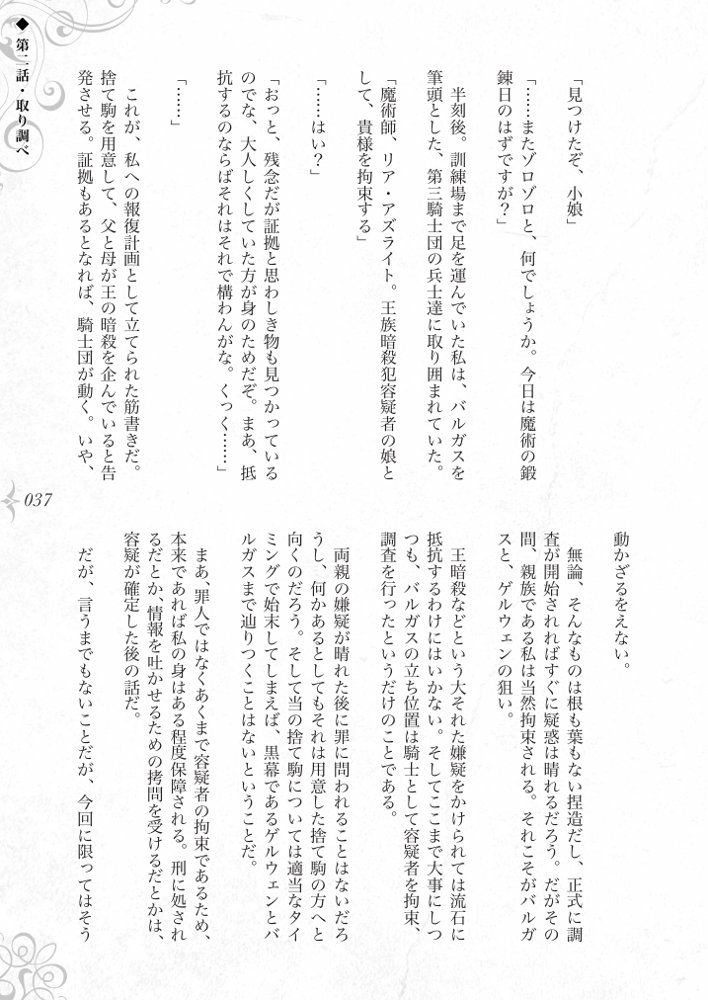 ◆ 第二話・取り調べ
「見つけたぞ、小娘」
「……またゾロゾロと、何でしょうか。今日は魔術の鍛
錬日のはずですが？」
半刻後。訓練場まで足を運んでいた私は、バルガスを
筆頭とした、第三騎士団の兵士達に取り囲まれていた。
「魔術師、リア・アズライト。王族暗殺犯容疑者の娘と
して、貴様を拘束する」
「……はい？」
「おっと、残念だが証拠と思わしき物も見つかっている
のでな、大人しくしていた方が身のためだぞ。まあ、抵
抗するのならばそれはそれで構わんがな。くっく……」
「……」
これが、私への報復計画として立てられた筋書きだ。
捨て駒を用意して、父と母が王の暗殺を企んでいると告
発させる。証拠もあるとなれば、騎士団が動く。いや、
動かざるをえない。
無論、そんなものは根も葉もない捏造だし、正式に調
査が開始されればすぐに疑惑は晴れるだろう。だがその
間、親族である私は当然拘束される。それこそがバルガ
スと、ゲルウェンの狙い。
王暗殺などという大それた嫌疑をかけられては流石に
抵抗するわけにはいかない。そしてここまで大事にしつ
つも、バルガスの立ち位置は騎士として容疑者を拘束、
調査を行ったというだけのことである。
両親の嫌疑が晴れた後に罪に問われることはないだろ
うし、何かあるとしてもそれは用意した捨て駒の方へと
向くのだろう。そして当の捨て駒については適当なタイ
ミングで始末してしまえば、黒幕であるゲルウェンとバ
ルガスまで辿りつくことはないということだ。
まあ、罪人ではなくあくまで容疑者の拘束であるため、
本来であれば私の身はある程度保障される。刑に処され
るだとか、情報を吐かせるための拷問を受けるだとかは、
容疑が確定した後の話だ。
だが、言うまでもないことだが、今回に限ってはそう
037